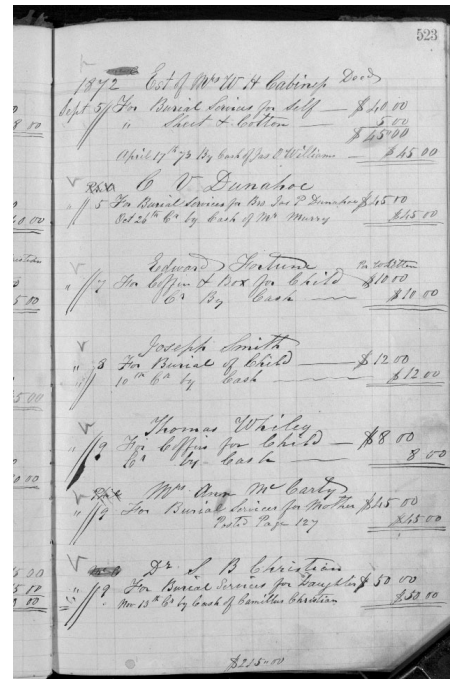 523
1872 Est of Mrs W H Cabiness Deed
Sept 5 For Burial Services for Self — $40.00
" Sheet & Cotton — 5.00
$45.00
April 17th 73 By Cash of Jas D Williams — $45.00
C V Dunahoe
" 5 For Burial Services for Bro Jas P Dunahoe $45.00
Oct 26th Cr by Cash of Mr Murry $45.00
Edward Fortune Per Whitten
" 7 For Coffin & Box for Child $10.00
Cr By Cash — $10.00
Joseph Smith
" 8 For Burial of Child — $12.00
" 10th Cr by Cash — $12.00
Thomas Whiley
" 9 For Coffin for Child — $8.00
Cr by Cash — 8.00
Mrs Ann McCarty
" 9 For Burial Services for Mother $45.00
Posted Page 127 $45.00
Dr S B Christian
" 9 For Burial Services for Daughter $50.00
Nov 13th Cr by Cash of Camillus Christian $50.00
$215.00